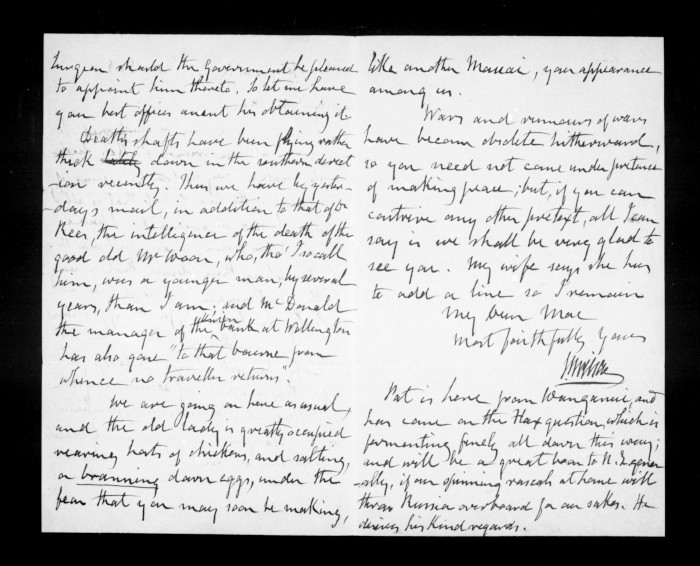 Surgeon should the Government be pleased
to appoint him thereto, So let me have
your best offices anent his obtaining it
Deaths shafts have been flying rather
thick lately down in the southern direct
-ion recently. Thus we have by yester-
-day's mail, in addition to that of Dr
Rees, the intelligence of the death of the
good old Mr Woon, who, tho' I so call
him, was a younger man, by several
years, than I am; and McDonald
the manager of the Union bank at Wellington
has also gone "to that bourne from
whence no traveller returns".
We are going on here as usual,
and the old lady is greatly occupied
rearing hosts of chickens, and salting,
or branning down eggs, under the
fear that you may soon be making,
like another , your appearance
among us.
Wars and rumours of wars
have become obsolete hitherward,
so you need not come under pretence
of making peace; but, if you can
contrive any other pretext, all I can
say is we shall be very glad to
see you. My wife says she has
to add a line so I remain
My dear Mac
Most faithfully Yours
Pat is here from Wanganui, and
has come on the Flax question, which is
fermenting finely all down this way;
and will be a great boon to N.Z. gener
-ally, if our spinning rascals at home will
throw Russia overboard for our sakes. He
desires his kind regards.